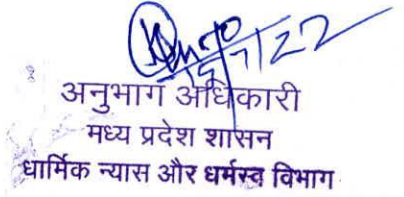 19/7/22
अनुभाग अधिकारी
मध्य प्रदेश शासन
धार्मिक न्यास और धर्मस्व विभाग